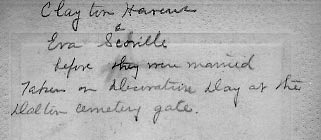 Clayton Havens
&
Eva Scoville
before they were married
Taken on Decoration Day at the
Dalton cemetery gate.